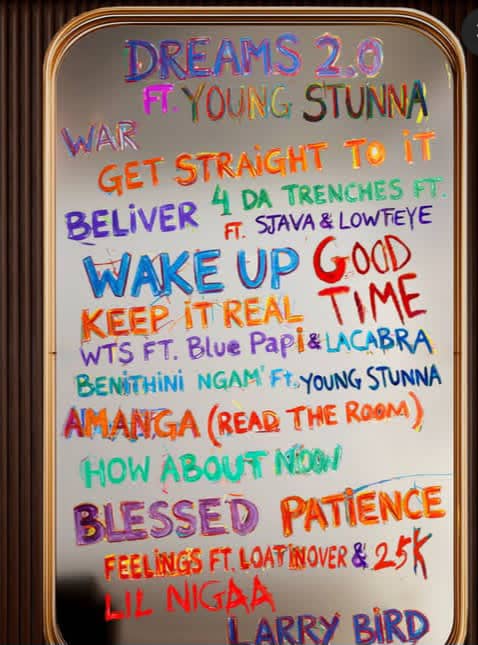 DREAMS 2.0
FT. YOUNG STUNNA
WAR
GET STRAIGHT TO IT
4 DA TRENCHES FT.
BELIVER FT. SJAVA & LOWFEYE
WAKE UP GOOD TIME
KEEP IT REAL
WTS FT. Blue Papi & LACABRA
BENITHINI NGAM' Ft. YOUNG STUNNA
AMANGA (READ THE ROOM)
HOW ABOUT NOW
BLESSED PATIENCE
FEELINGS FT. LOATINOVER & 25K
LIL NIGAA
LARRY BIRD